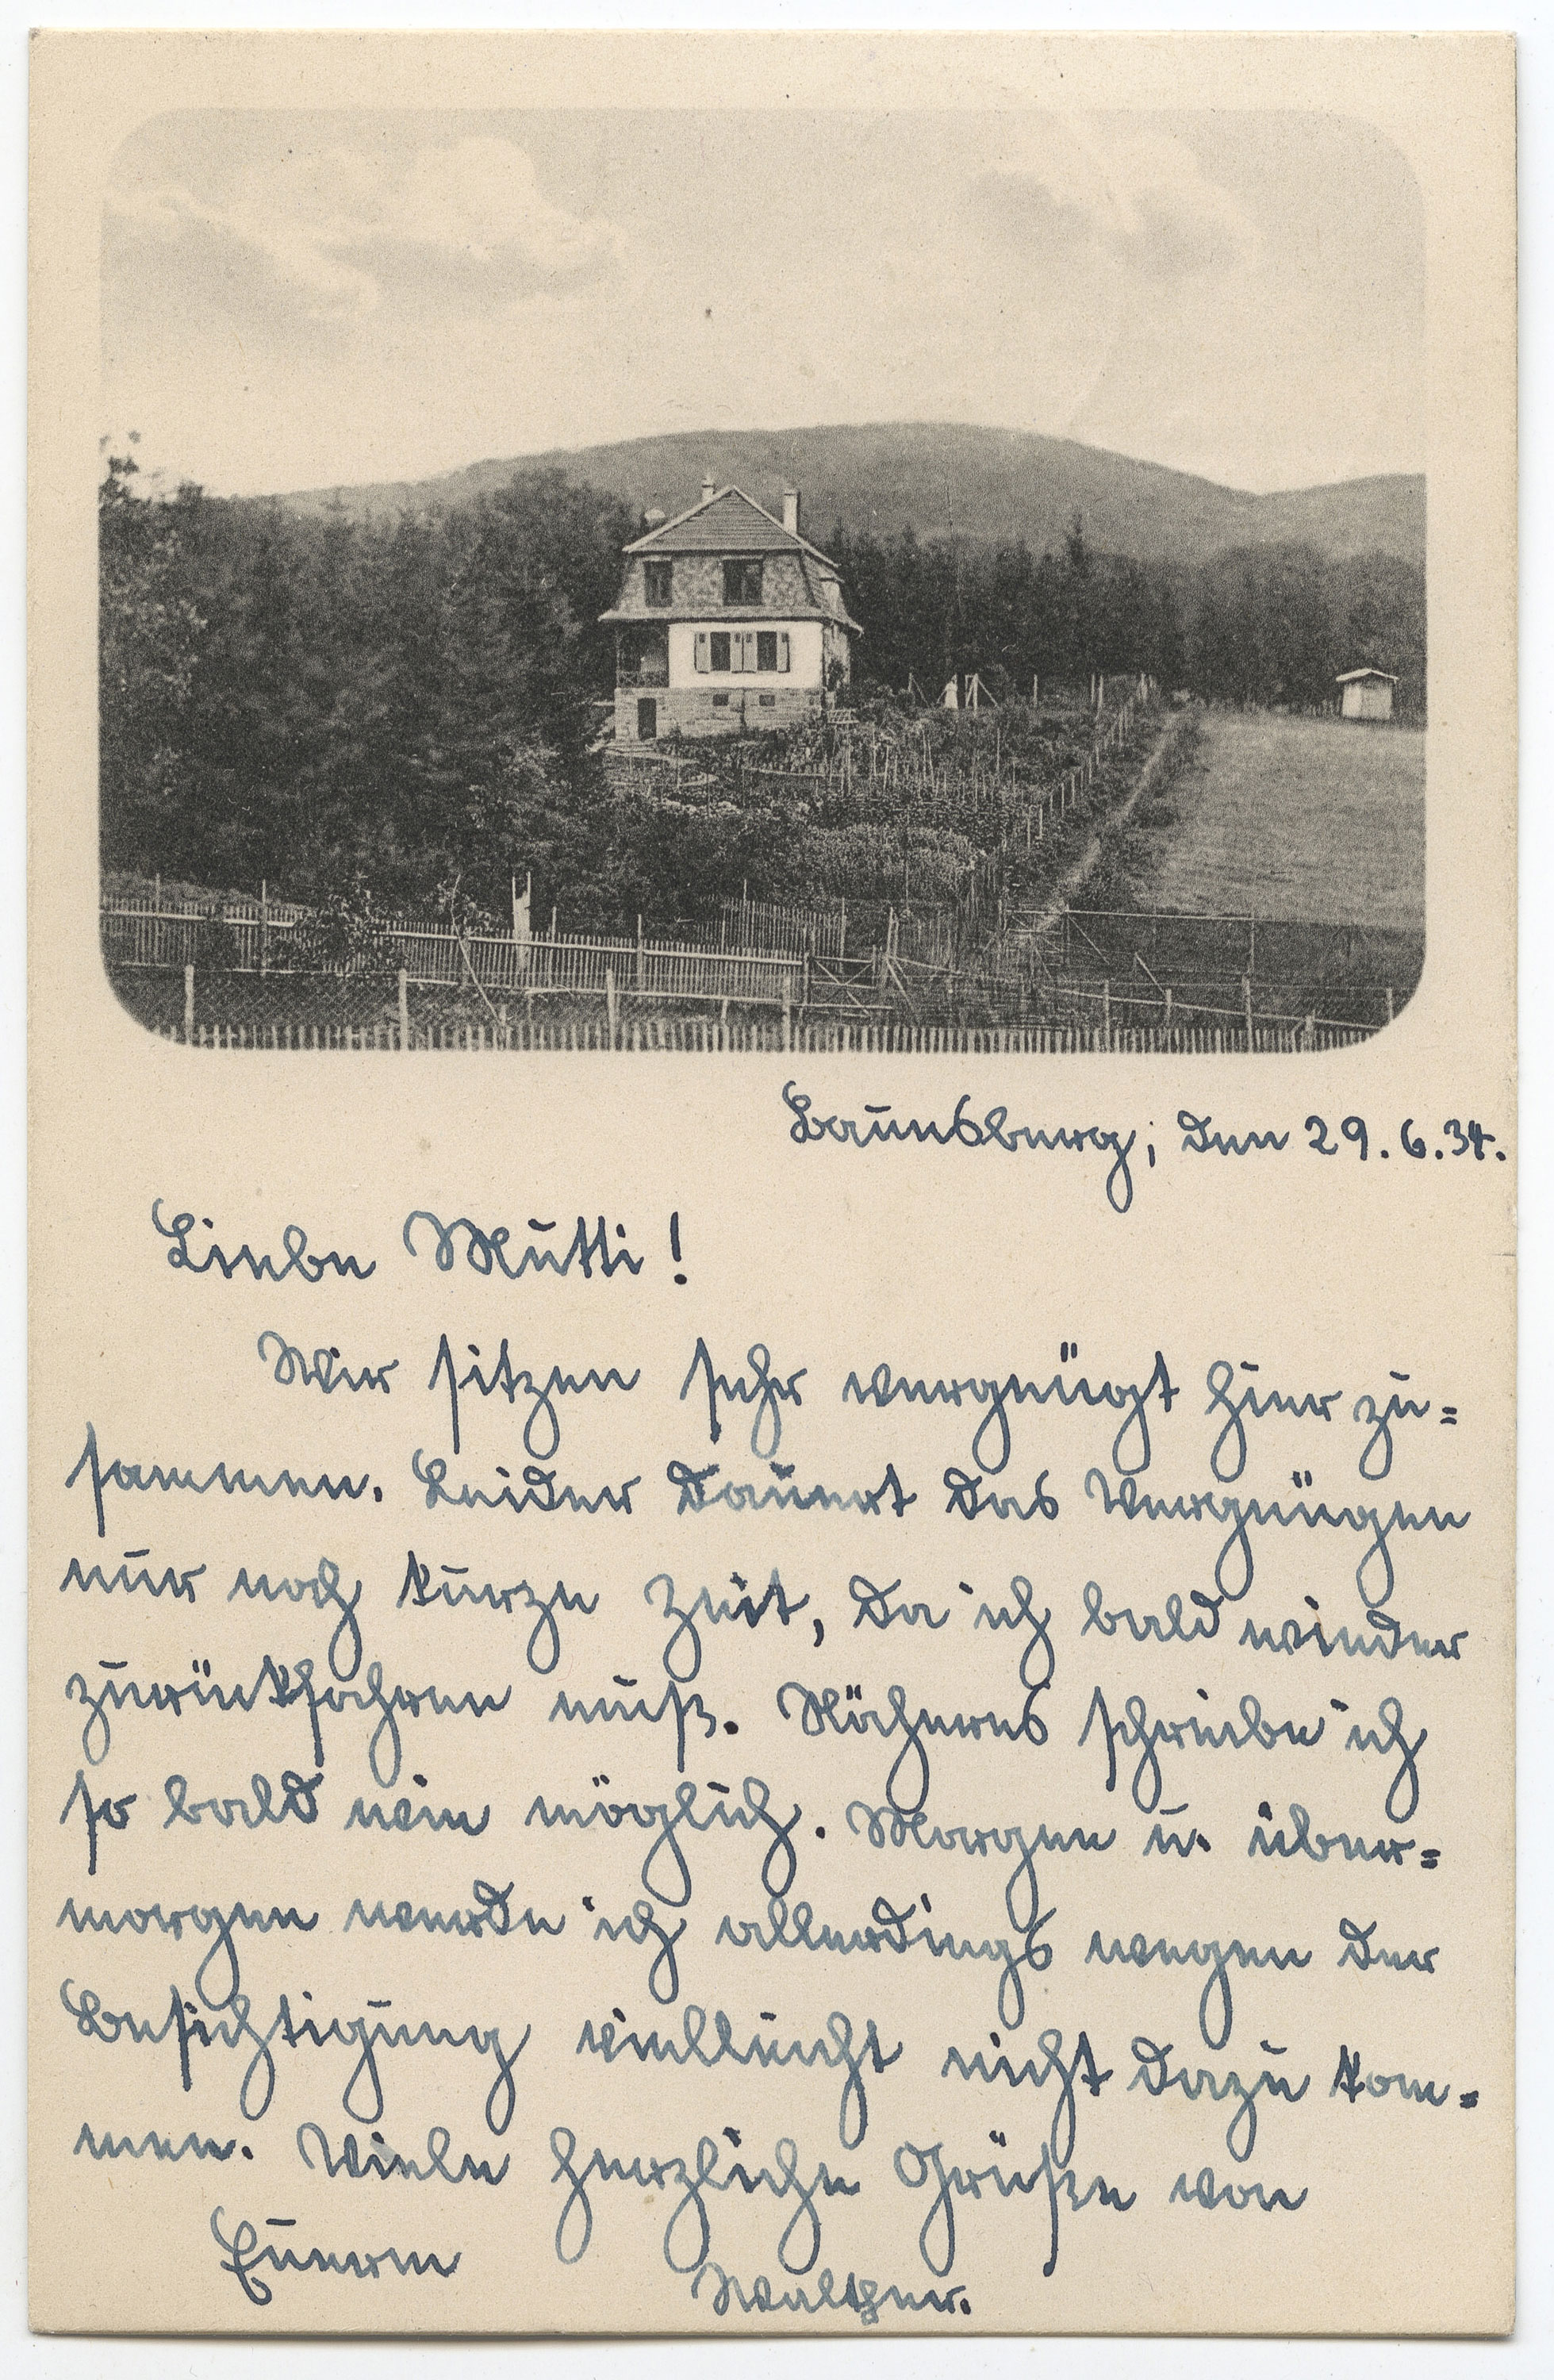 Baunsberg, den 29.6.34.
Liebe Mutti!
Wir sitzen sehr vergnügt hier zu=
sammen. Leider dauert das Vergnügen
nur noch kurze Zeit, da ich bald wieder
zurückfahren muß. Näheres schreibe ich
so bald wie möglich. Morgen u. über=
morgen werde ich allerdings wegen der
Besichtigung vielleicht nicht dazu kom=
men. Viele herzliche Grüße von
Euerm
Walther.